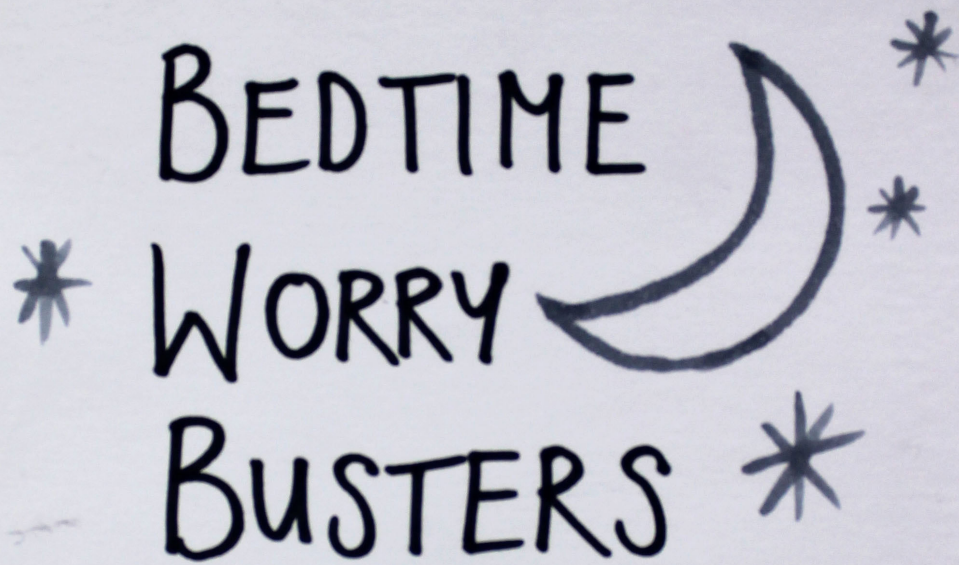 BEDTIME
WORRY
BUSTERS